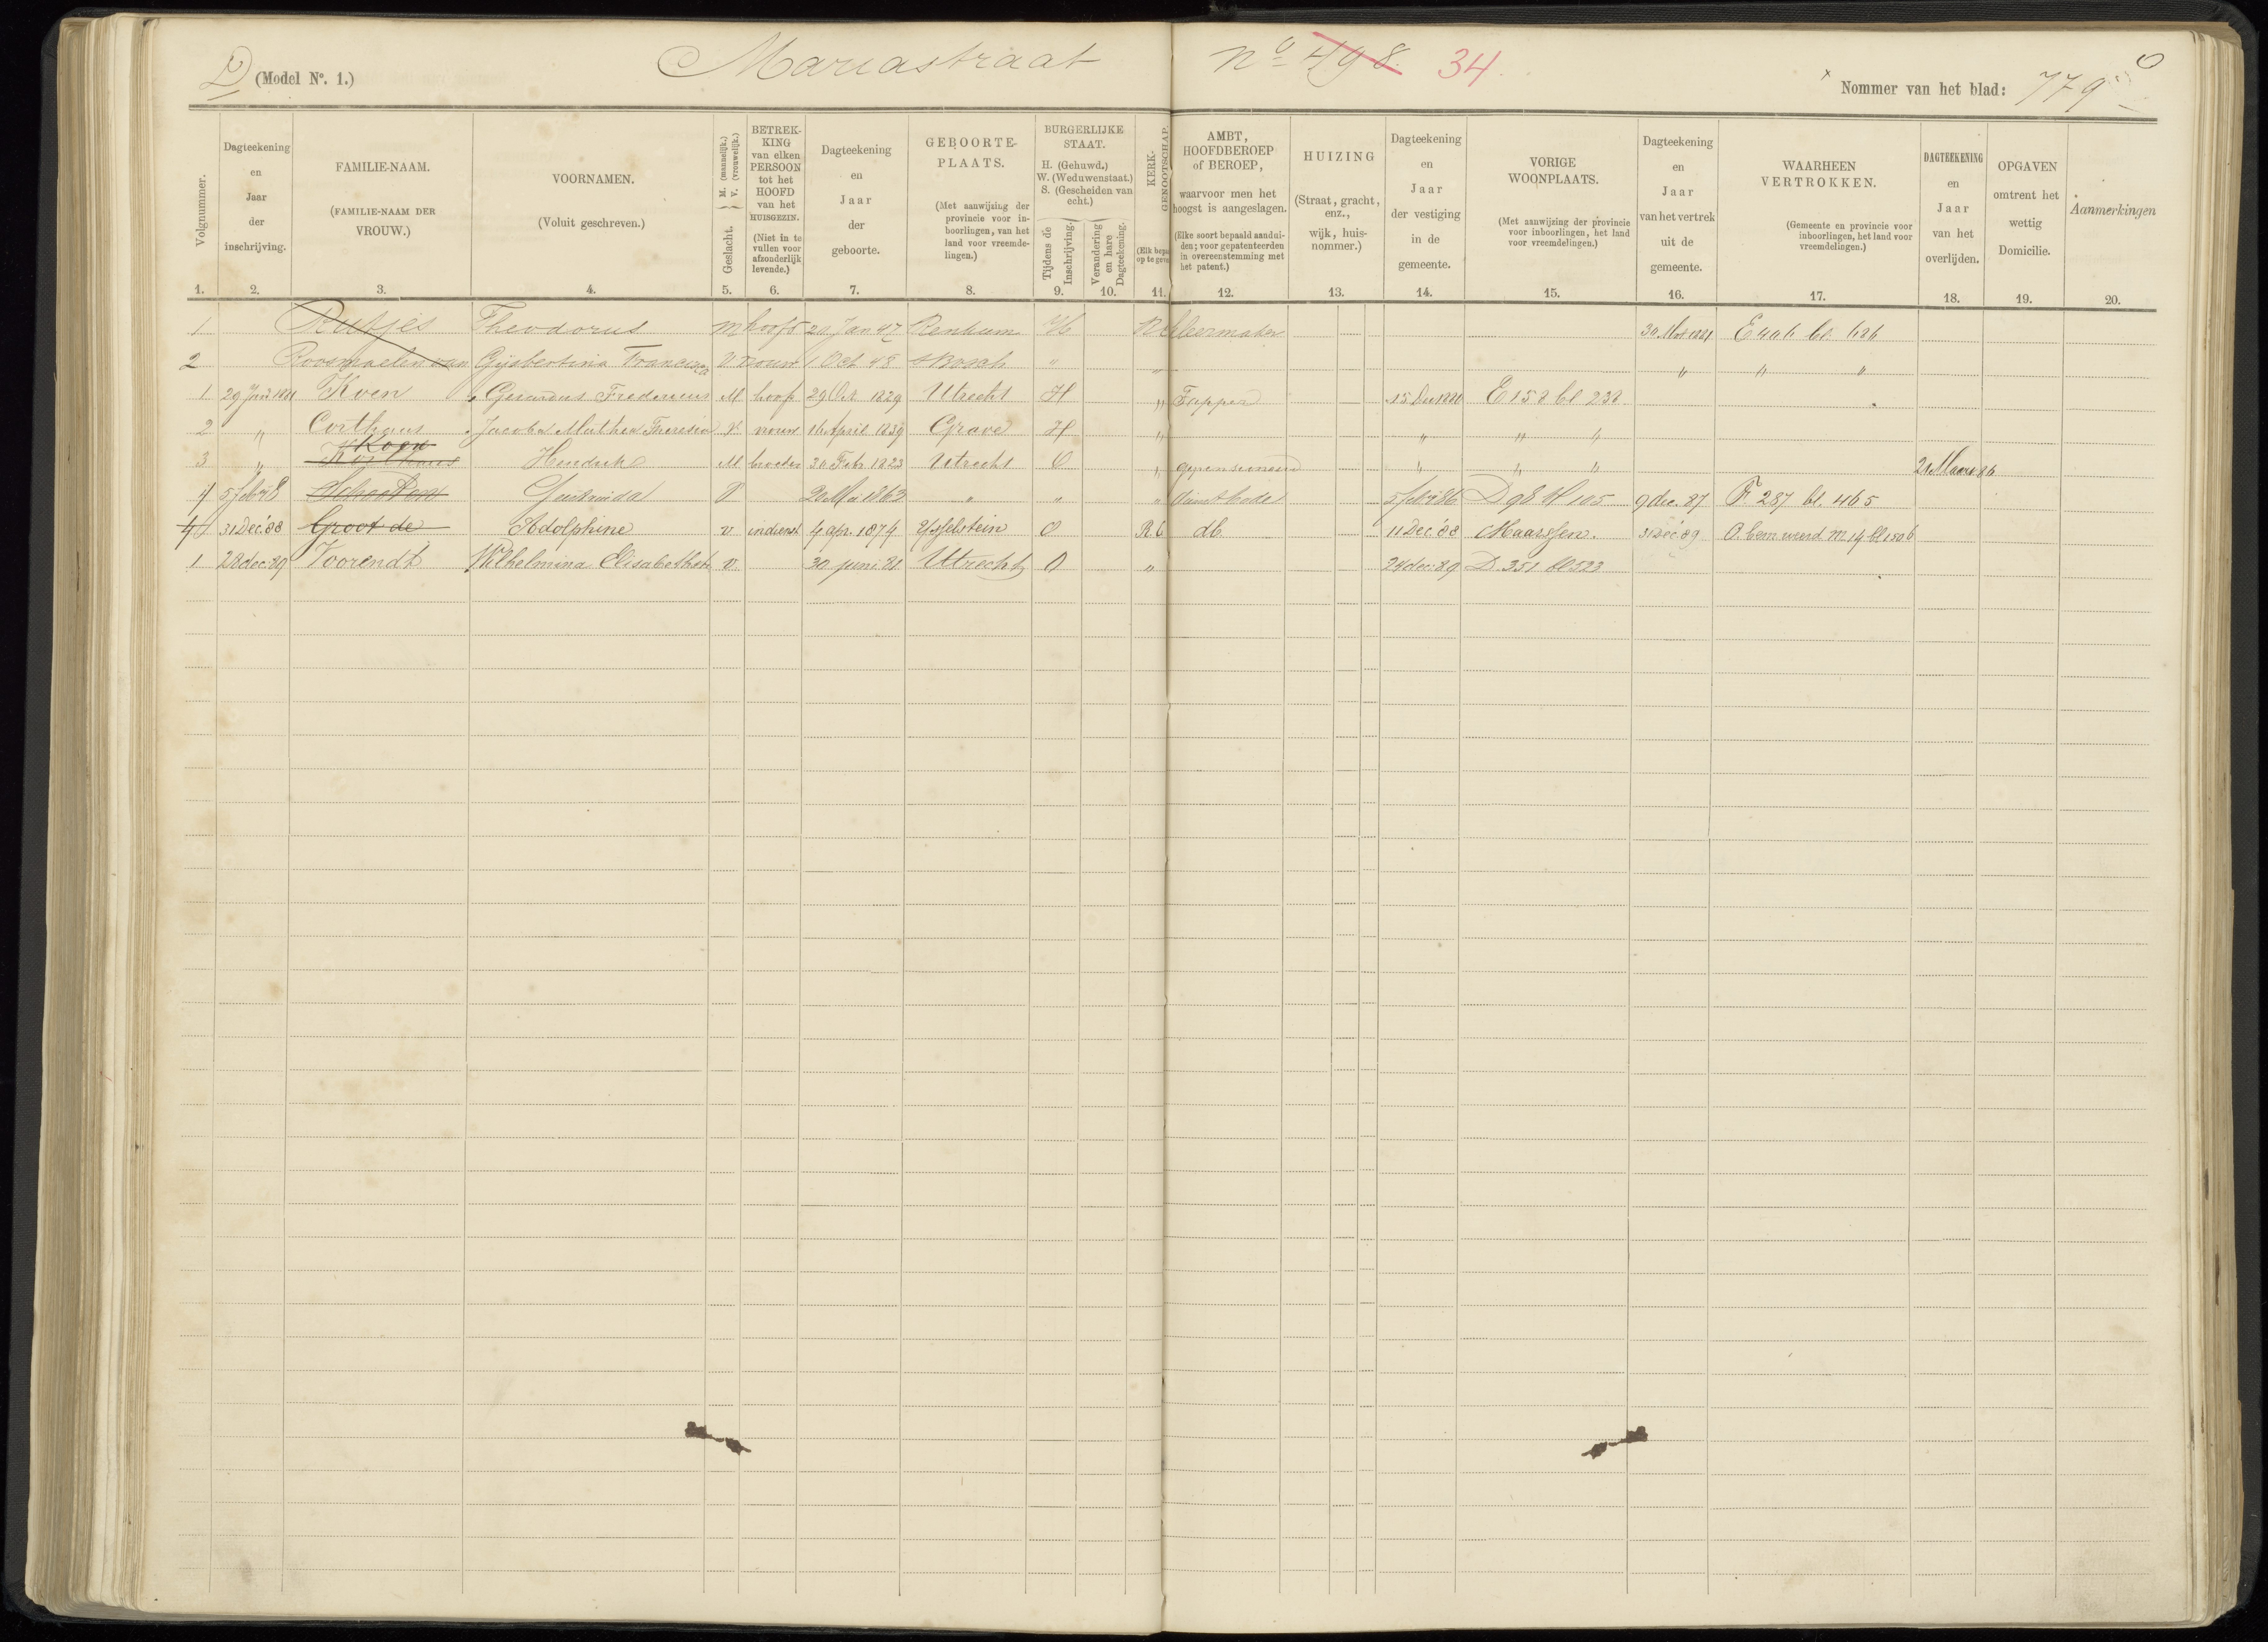 D (Model No. 1.) Mariastraat No 498. 34. Nommer van het blad: 779
Volgnummer.
Dagteekening en Jaar der inschrijving.
FAMILIE-NAAM. (FAMILIE-NAAM DER VROUW.)
VOORNAMEN. (Voluit geschreven.)
Geslacht. M. (mannelijk.) V. (vrouwelijk.)
BETREKKING van elken PERSOON tot het HOOFD van het HUISGEZIN. (Niet in te vullen voor afzonderlijk levende.)
Dagteekening en Jaar der geboorte.
GEBOORTE-PLAATS. (Met aanwijzing der provincie voor inboorlingen, van het land voor vreemdelingen.)
BURGERLIJKE STAAT. H. (Gehuwd.) W. (Weduwenstaat.) S. (Gescheiden van echt.)
Tijdens de Inschrijving.
Verandering en hare Dagteekening.
KERK-GENOOTSCHAP. (Elk bepa op te geve
AMBT, HOOFDBEROEP of BEROEP, waarvoor men het hoogst is aangeslagen. (Elke soort bepaald aanduiden; voor gepatenteerden in overeenstemming met het patent.)
HUIZING (Straat, gracht, enz., wijk, huisnommer.)
Dagteekening en Jaar der vestiging in de gemeente.
VORIGE WOONPLAATS. (Met aanwijzing der provincie voor inboorlingen, het land voor vreemdelingen.)
Dagteekening en Jaar van het vertrek uit de gemeente.
WAARHEEN VERTROKKEN. (Gemeente en provincie voor inboorlingen, het land voor vreemdelingen.)
DAGTEEKENING en Jaar van het overlijden.
OPGAVEN omtrent het wettig Domicilie.
Aanmerkingen
1. 2. 3. 4. 5. 6. 7. 8. 9. 10. 11. 12. 13. 14. 15. 16. 17. 18. 19. 20.
1 Rutjes Theodorus m hoofd 20 Jan 47 Renkum H
2 Gijsbertina Francisca V vrouw 1 Oct 48 sBosch "  " " "
1 Koen Gerardus Fredericus M hoof 29 Oct. 1829 Utrecht H " Tapper E 152 bl 232
2 " Corthaus Jacoba Martha Theresia V. vrouw 16 April 1839 Grave H " " " "
Koen
3 " Korthaus Hendrik M broeder Febr. 1823 Utrecht O " gepensioneerd " " " 21 Maart 86
4 5 feb Schooten V 1863 " " " dienstbode 5 feb 86 9 dec. 87 F. 287 bl. 465
4 31 Dec. '88 Groot de Adolphine v in dienst 4 apr. 1874 IJsselstein O R. C db. 11 Dec '88 Maarssen. 31 Dec '89
1 28 dec. 89 Voorendt Wilhelmina Elisabeth v 30 juni Utrecht O " 24 dec. 89 D. 351 bl 523